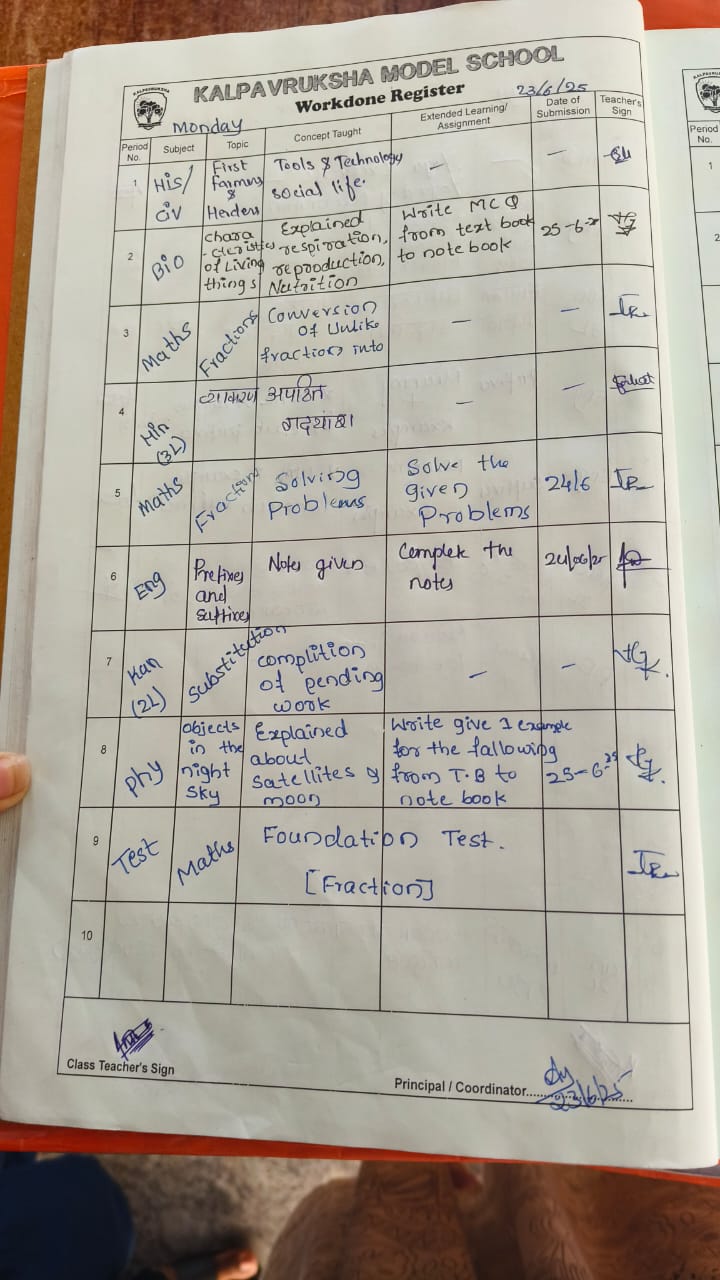 KALPAVRUKSHA MODEL SCHOOL
Workdone Register
Monday
23/6/25
Period No.
Subject
Topic
Concept Taught
Extended Learning/ Assignment
Date of Submission
Teacher's Sign
1
His/
Civ
First
Farmers
&
Herders
Tools & Technology
social life.
—
—
2
Bio
chara
-cteristics
of Living
things
Explained
respiration,
reproduction,
Nutrition
Write MCQ
from text book
to note book
25-6-
3
Maths
Fractions
Conversion
of Unlike
fraction into
—
—
4
Hin
(3L)
व्याकरण
अपठित
गद्यांश।
—
—
5
Maths
Fraction
Solving
Problems
Solve the
given
Problems
24/6
6
Eng
Prefixes
and
Suffixes
Notes given
Complete the
notes
24/06/25
7
Kan
(2L)
Substitution
complition
of pending
work
—
—
8
Phy
objects
in the
night
sky
Explained
about
Satellites &
moon
Write give 1 example
for the fallowing
from T.B to
note book
25-6-25
9
Test
Maths
Foundation Test.
[Fraction]
10
Class Teacher's Sign
Principal / Coordinator..........................
23/6/25
Period
No.
1
2